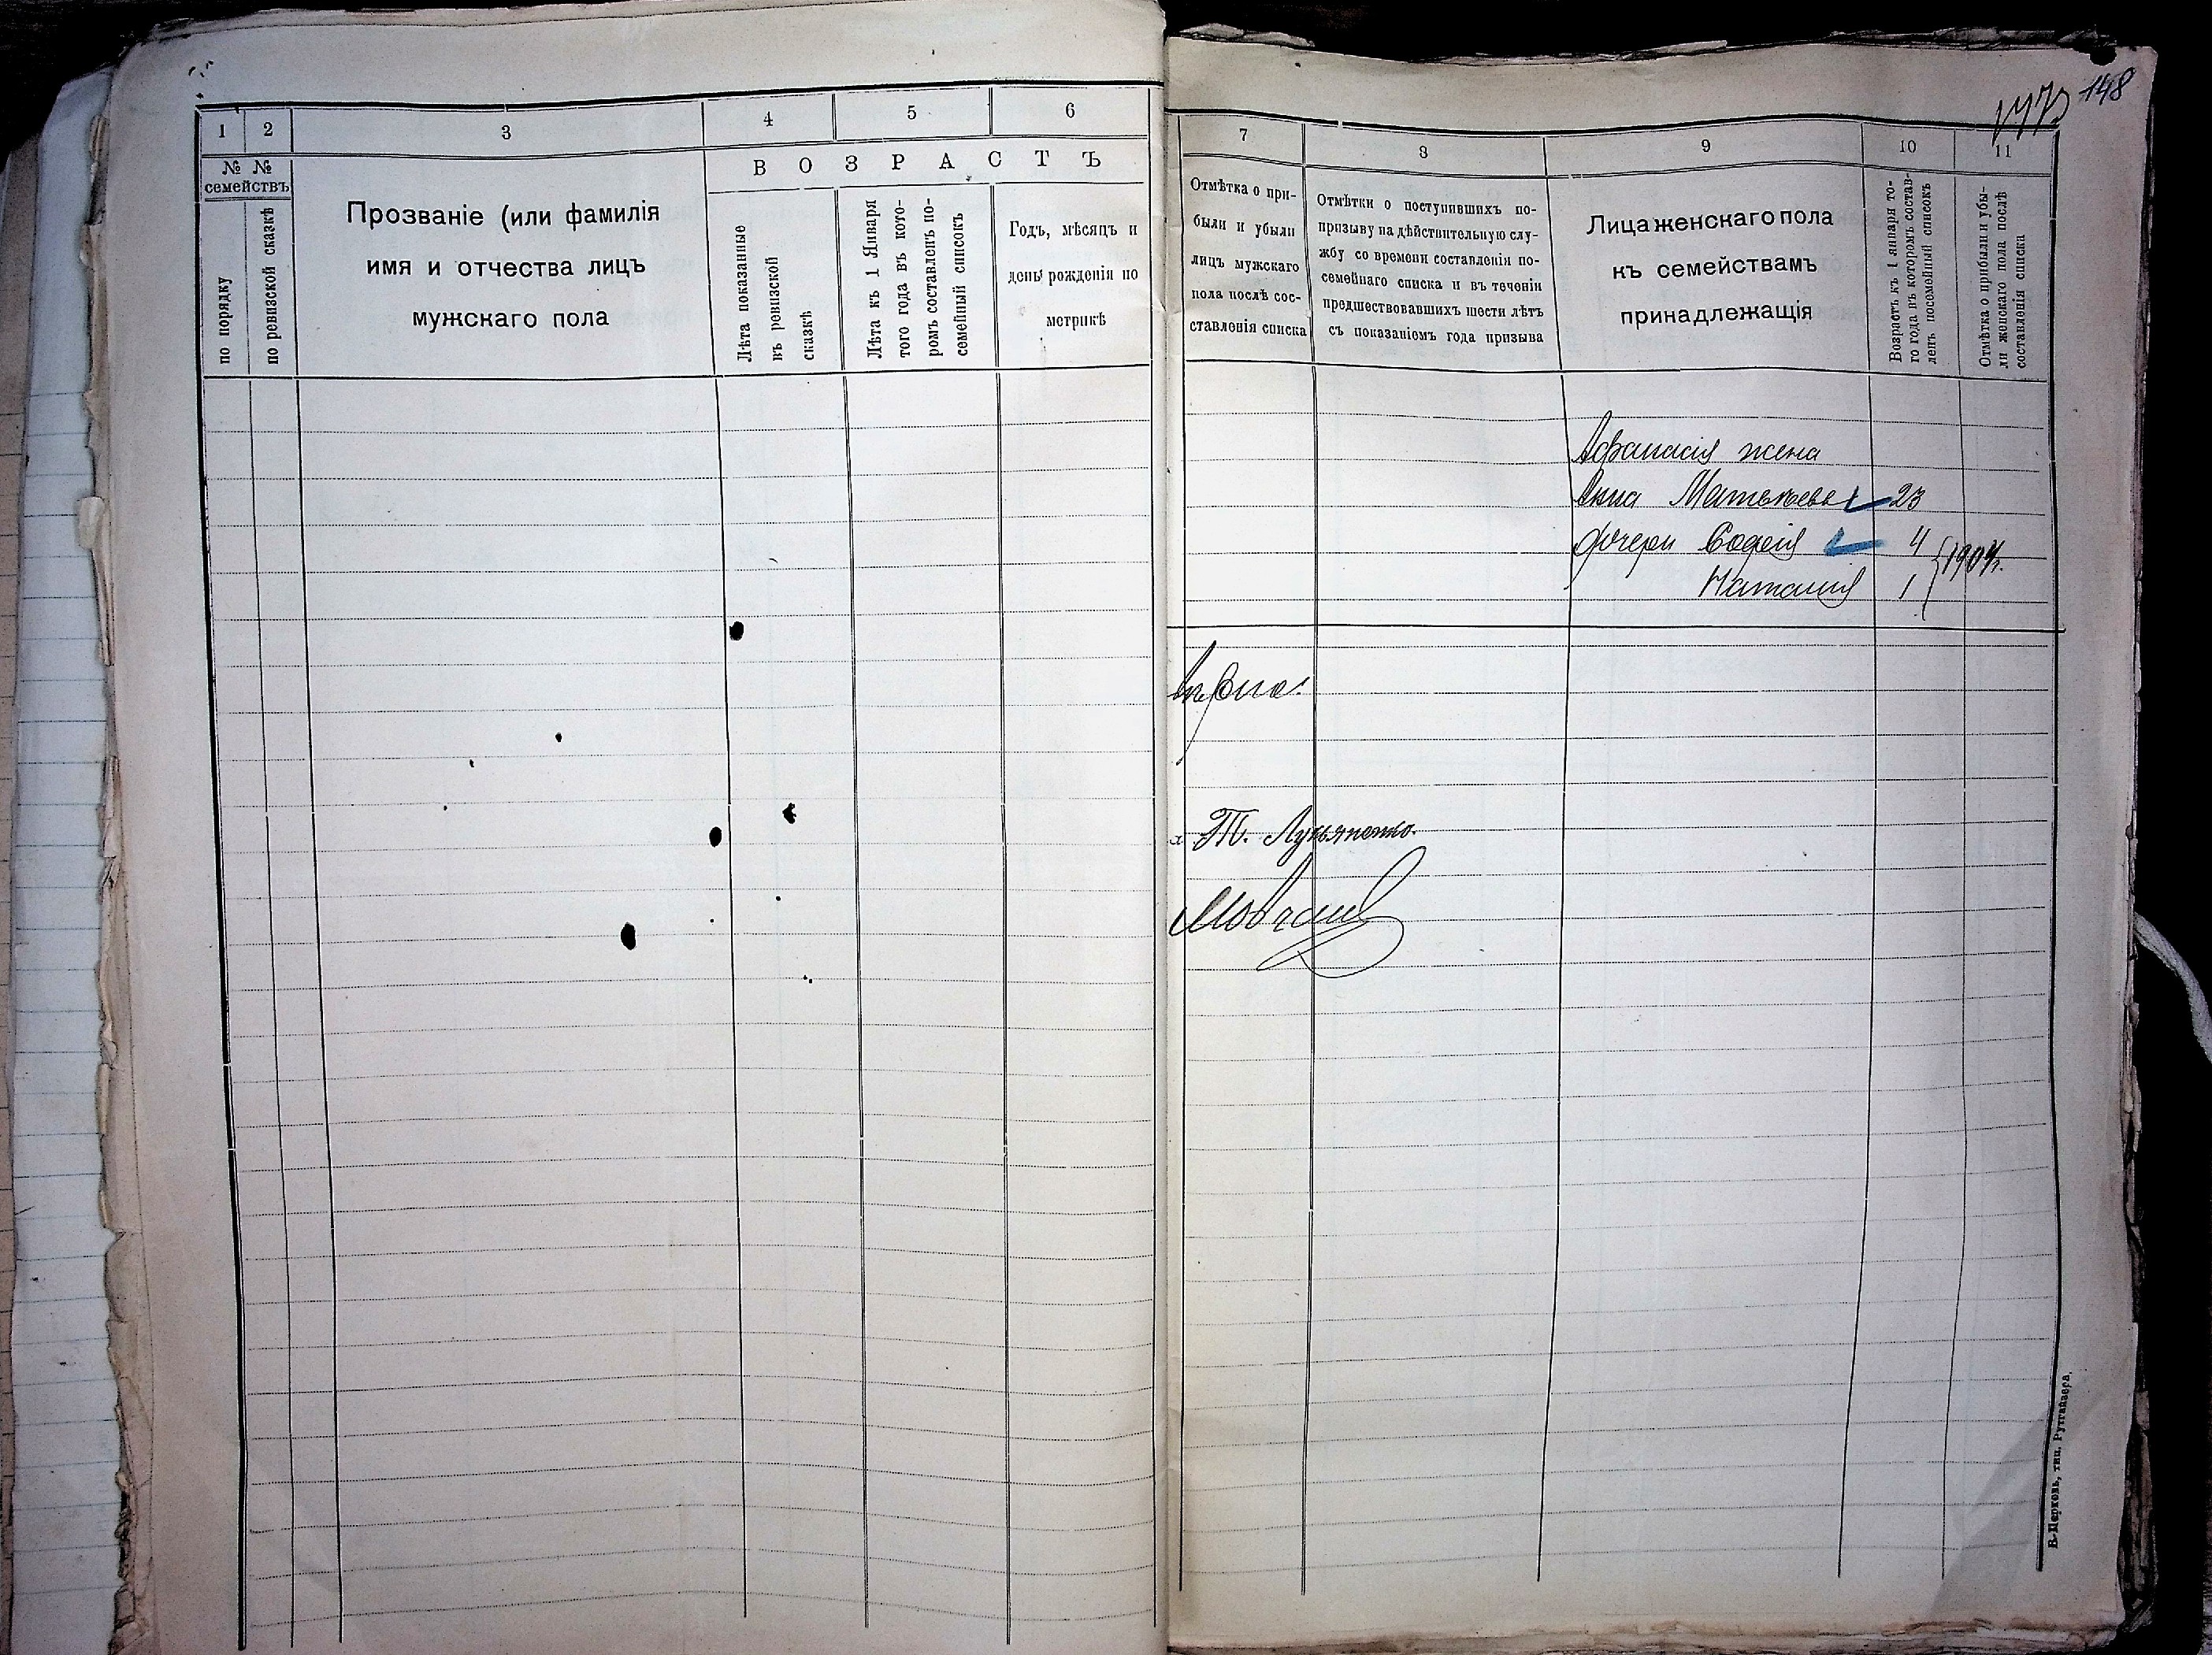 148
1 2 3 4 5 6
№ № семействъ
по порядку
по ревизской сказкѣ
Прозваніе (или фамилія
имя и отчества лицъ
мужскаго пола
ВОЗРАСТЪ
Лѣта показанные
въ ревизской
сказкѣ
Лѣта къ 1 Января
того года въ кото-
ромъ составленъ по-
семейный списокъ
Годъ, мѣсяцъ и
день рожденія по
метрикѣ
7 8 9 10 11
Отмѣтка о при-
были и убыли
лицъ мужскаго
пола послѣ сос-
тавленія списка
Отмѣтки о поступившихъ по-
призыву на дѣйствительную слу-
жбу со времени составленія по-
семейнаго списка и въ теченіи
предшествовавшихъ шести лѣтъ
съ показаніемъ года призыва
Лица женскаго пола
къ семействамъ
принадлежащія
Возрастъ къ 1 января то-
го года въ которомъ состав-
ленъ посемейный списокъ
Отмѣтка о прибыли и убы-
ли женскаго пола послѣ
составленія списка
Афанасія жена
Анна Матвѣева 23
дочери Софія 4
Наталія 1 1904г.
Т. Лукьяненко.
Мовчан
Б-Церковь, тип. Рутгайзера.